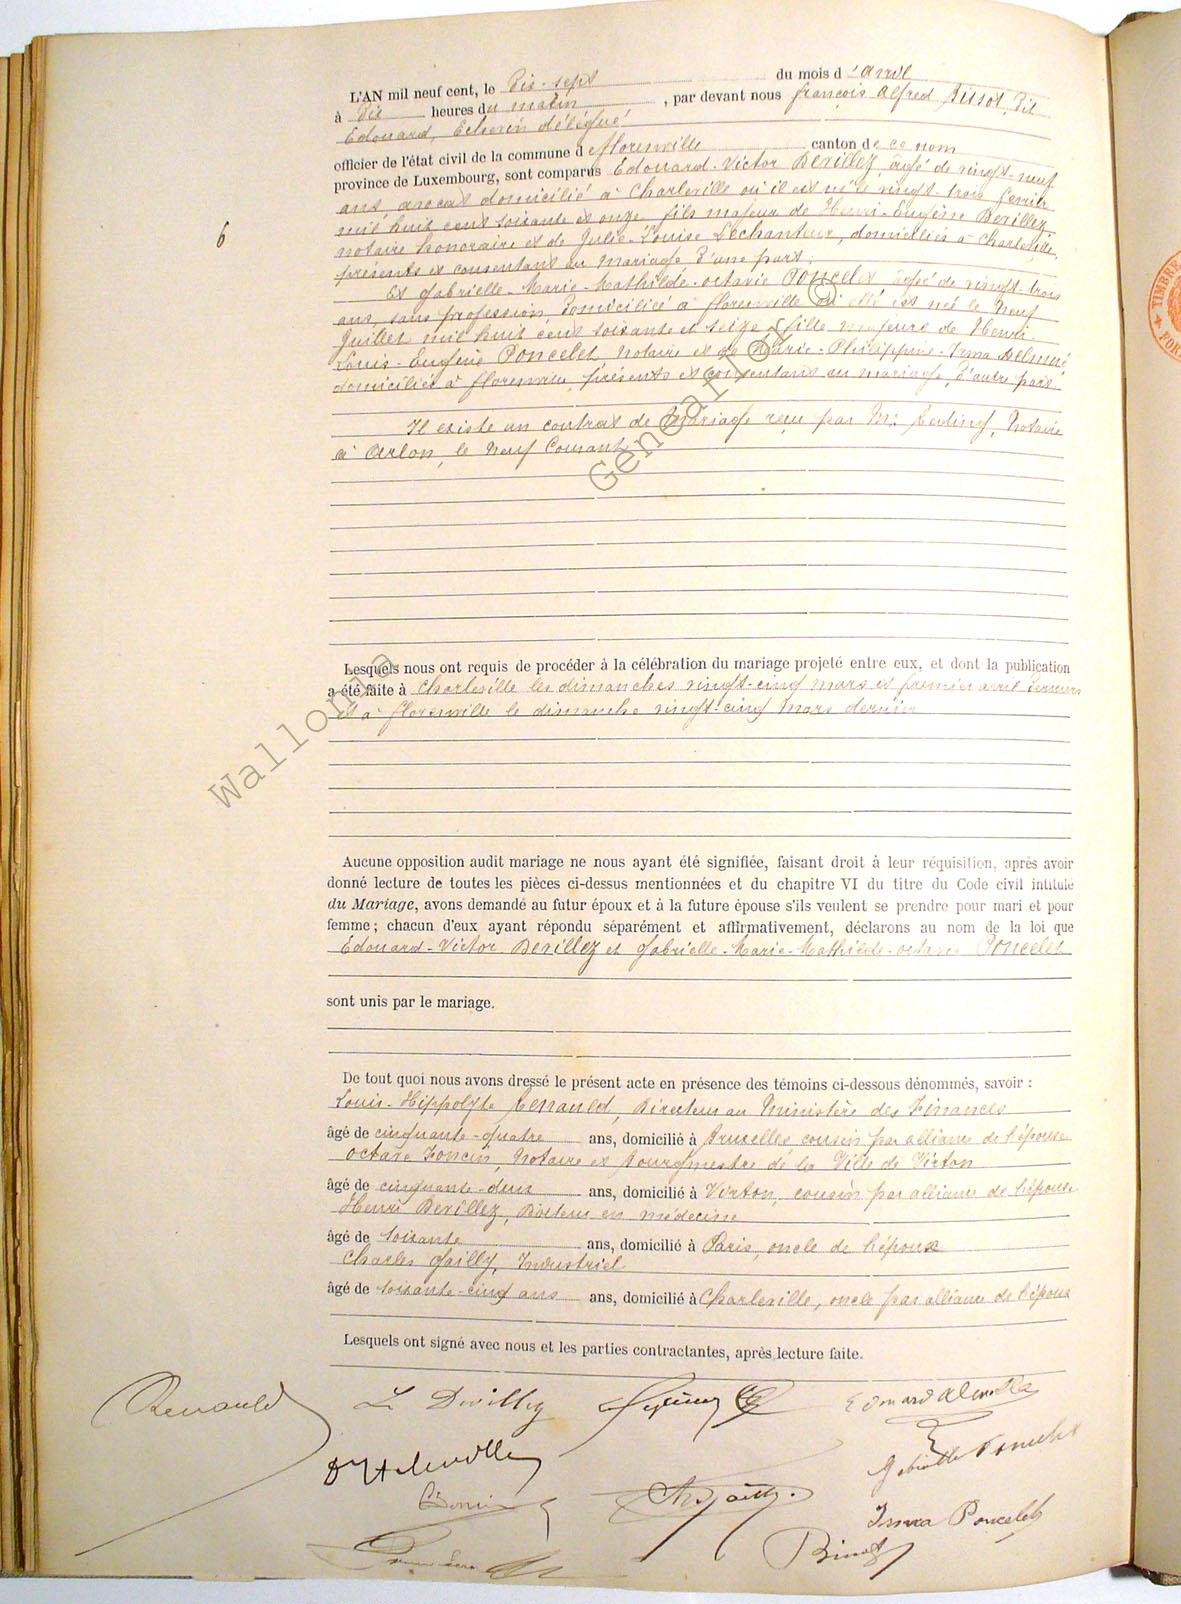 L'AN mil neuf cent, le Dix-sept du mois d'avril
à Dix heures du matin, par devant nous françois Alfred Bissot, dit
Edouard, Echevin délégué
officier de l'état civil de la commune de florenville canton de ce nom
province de Luxembourg, sont comparus Edouard-Victor Devillez, âgé de vingt-neuf
ans, avocat domicilié à Charleville où il est né le vingt-trois février
mil huit cent soixante et onze fils majeur de Henri-Eugène Devillez
notaire honoraire et de Julie-Louise Lechanteur, domiciliés à Charleville,
présents et consentant au mariage d'une part;
6
Et Gabrielle-Marie-Mathilde-octavie Poncelet âgée de vingt-trois
ans, sans profession, domiciliée à florenville où elle est née le neuf
Juillet mil huit cent soixante et seize fille majeure de Henri-
Louis-Eugène Poncelet Notaire et de Marie-Philippine-Irma
domiciliés à florenville, présents et consentant au mariage, d'autre part
Il existe un contrat de mariage reçu par Mr. Notaire
à Arlon, le neuf Courant
Lesquels nous ont requis de procéder à la célébration du mariage projeté entre eux, et dont la publication
a été faite à Charleville les dimanches vingt-cinq mars et premier avril derniers
et à florenville le dimanche vingt-cinq mars dernier
Aucune opposition audit mariage ne nous ayant été signifiée, faisant droit à leur réquisition, après avoir
donné lecture de toutes les pièces ci-dessus mentionnées et du chapitre VI du titre du Code civil intitulé
du Mariage, avons demandé au futur époux et à la future épouse s'ils veulent se prendre pour mari et pour
femme; chacun d'eux ayant répondu séparément et affirmativement, déclarons au nom de la loi que
Edouard-Victor Devillez et Gabrielle-Marie-Mathilde-octavie Poncelet
sont unis par le mariage.
De tout quoi nous avons dressé le présent acte en présence des témoins ci-dessous dénommés, savoir :
Louis-Hippolyte Renauld, Directeur au Ministère des Finances
âgé de cinquante-quatre ans, domicilié à Bruxelles cousin par alliance de l'épouse
octave Foncin, Notaire et Bourgmestre de la Ville de Virton
âgé de cinquante-deux ans, domicilié à Virton, cousin par alliance de l'épouse
Henri Devillez, Docteur en médecine
âgé de soixante ans, domicilié à Paris, oncle de l'époux
Charles Gailly, Industriel
âgé de soixante-cinq ans ans, domicilié à Charleville, oncle par alliance de l'époux
Lesquels ont signé avec nous et les parties contractantes, après lecture faite.
Renauld
L Devillez
Edouard Devillez
Gabrielle Poncelet
Irma Poncelet
Bissot
Wallonia
Genealter ©
TIMBRE